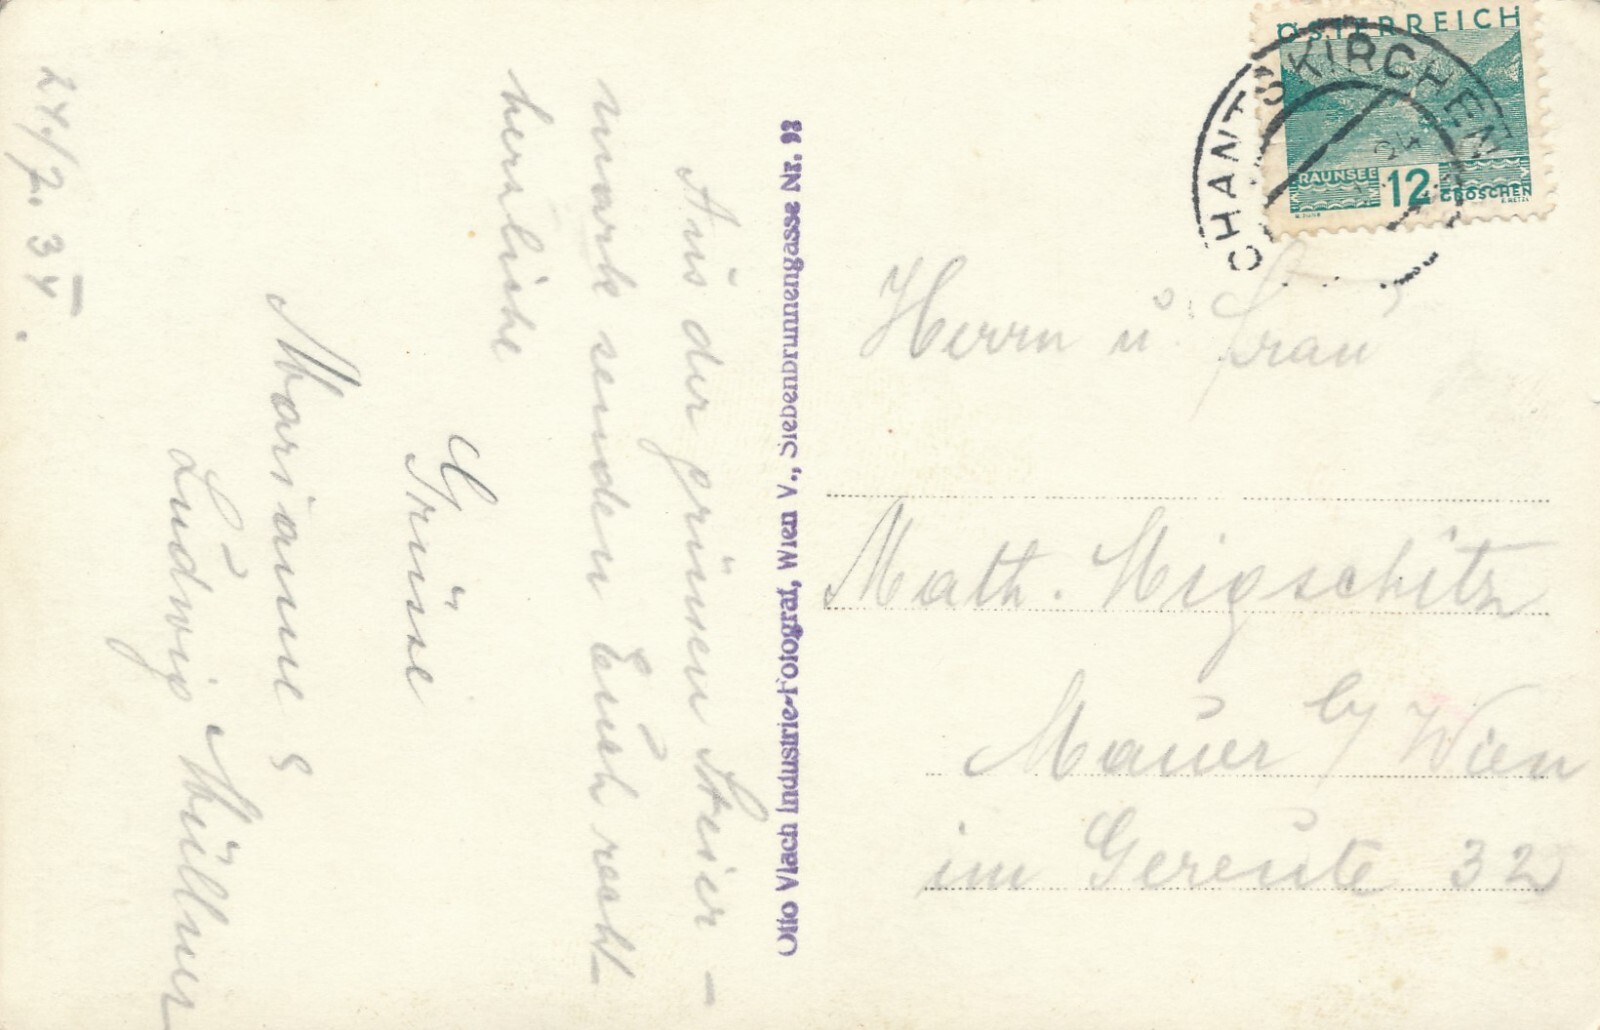 24./7. 34.
Aus der grünen Steier-
mark senden Euch recht
herzliche
Grüsse
Marianne &
Ludwig Müllner
Otto Vlach Industrie-Fotograf, Wien V., Siebenbrunnengasse Nr. 92
ÖSTERREICH
TRAUNSEE 12 GROSCHEN
SCHANTSKIRCHEN
Herrn u Frau
Math. Migschitz
Mauer b/ Wien
im Gereute 32